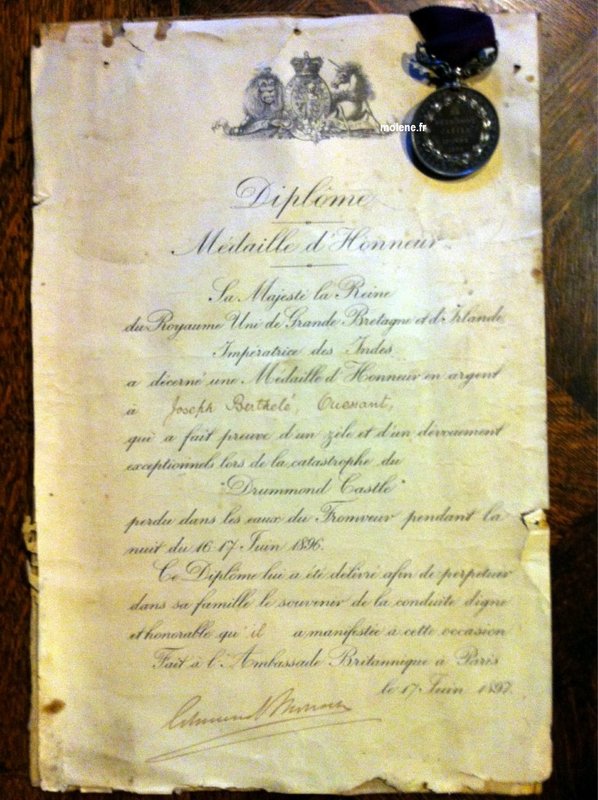 molene.fr
Diplôme
Médaille d'Honneur
Sa Majesté la Reine
du Royaume Uni de Grande Bretagne et d'Irlande
Impératrice des Indes
a décerné une Médaille d'Honneur en argent
à Joseph Berthelé, Ouessant,
qui a fait preuve d'un zèle et d'un dévouement
exceptionnels lors de la catastrophe du
"Drummond Castle"
perdu dans les eaux du Fromveur pendant la
nuit du 16-17 Juin 1896.
Ce Diplôme lui a été délivré afin de perpétuer
dans sa famille le souvenir de la conduite digne
et honorable qu'il a manifestée à cette occasion
Fait à l'Ambassade Britannique à Paris
le 17 Juin 1897.